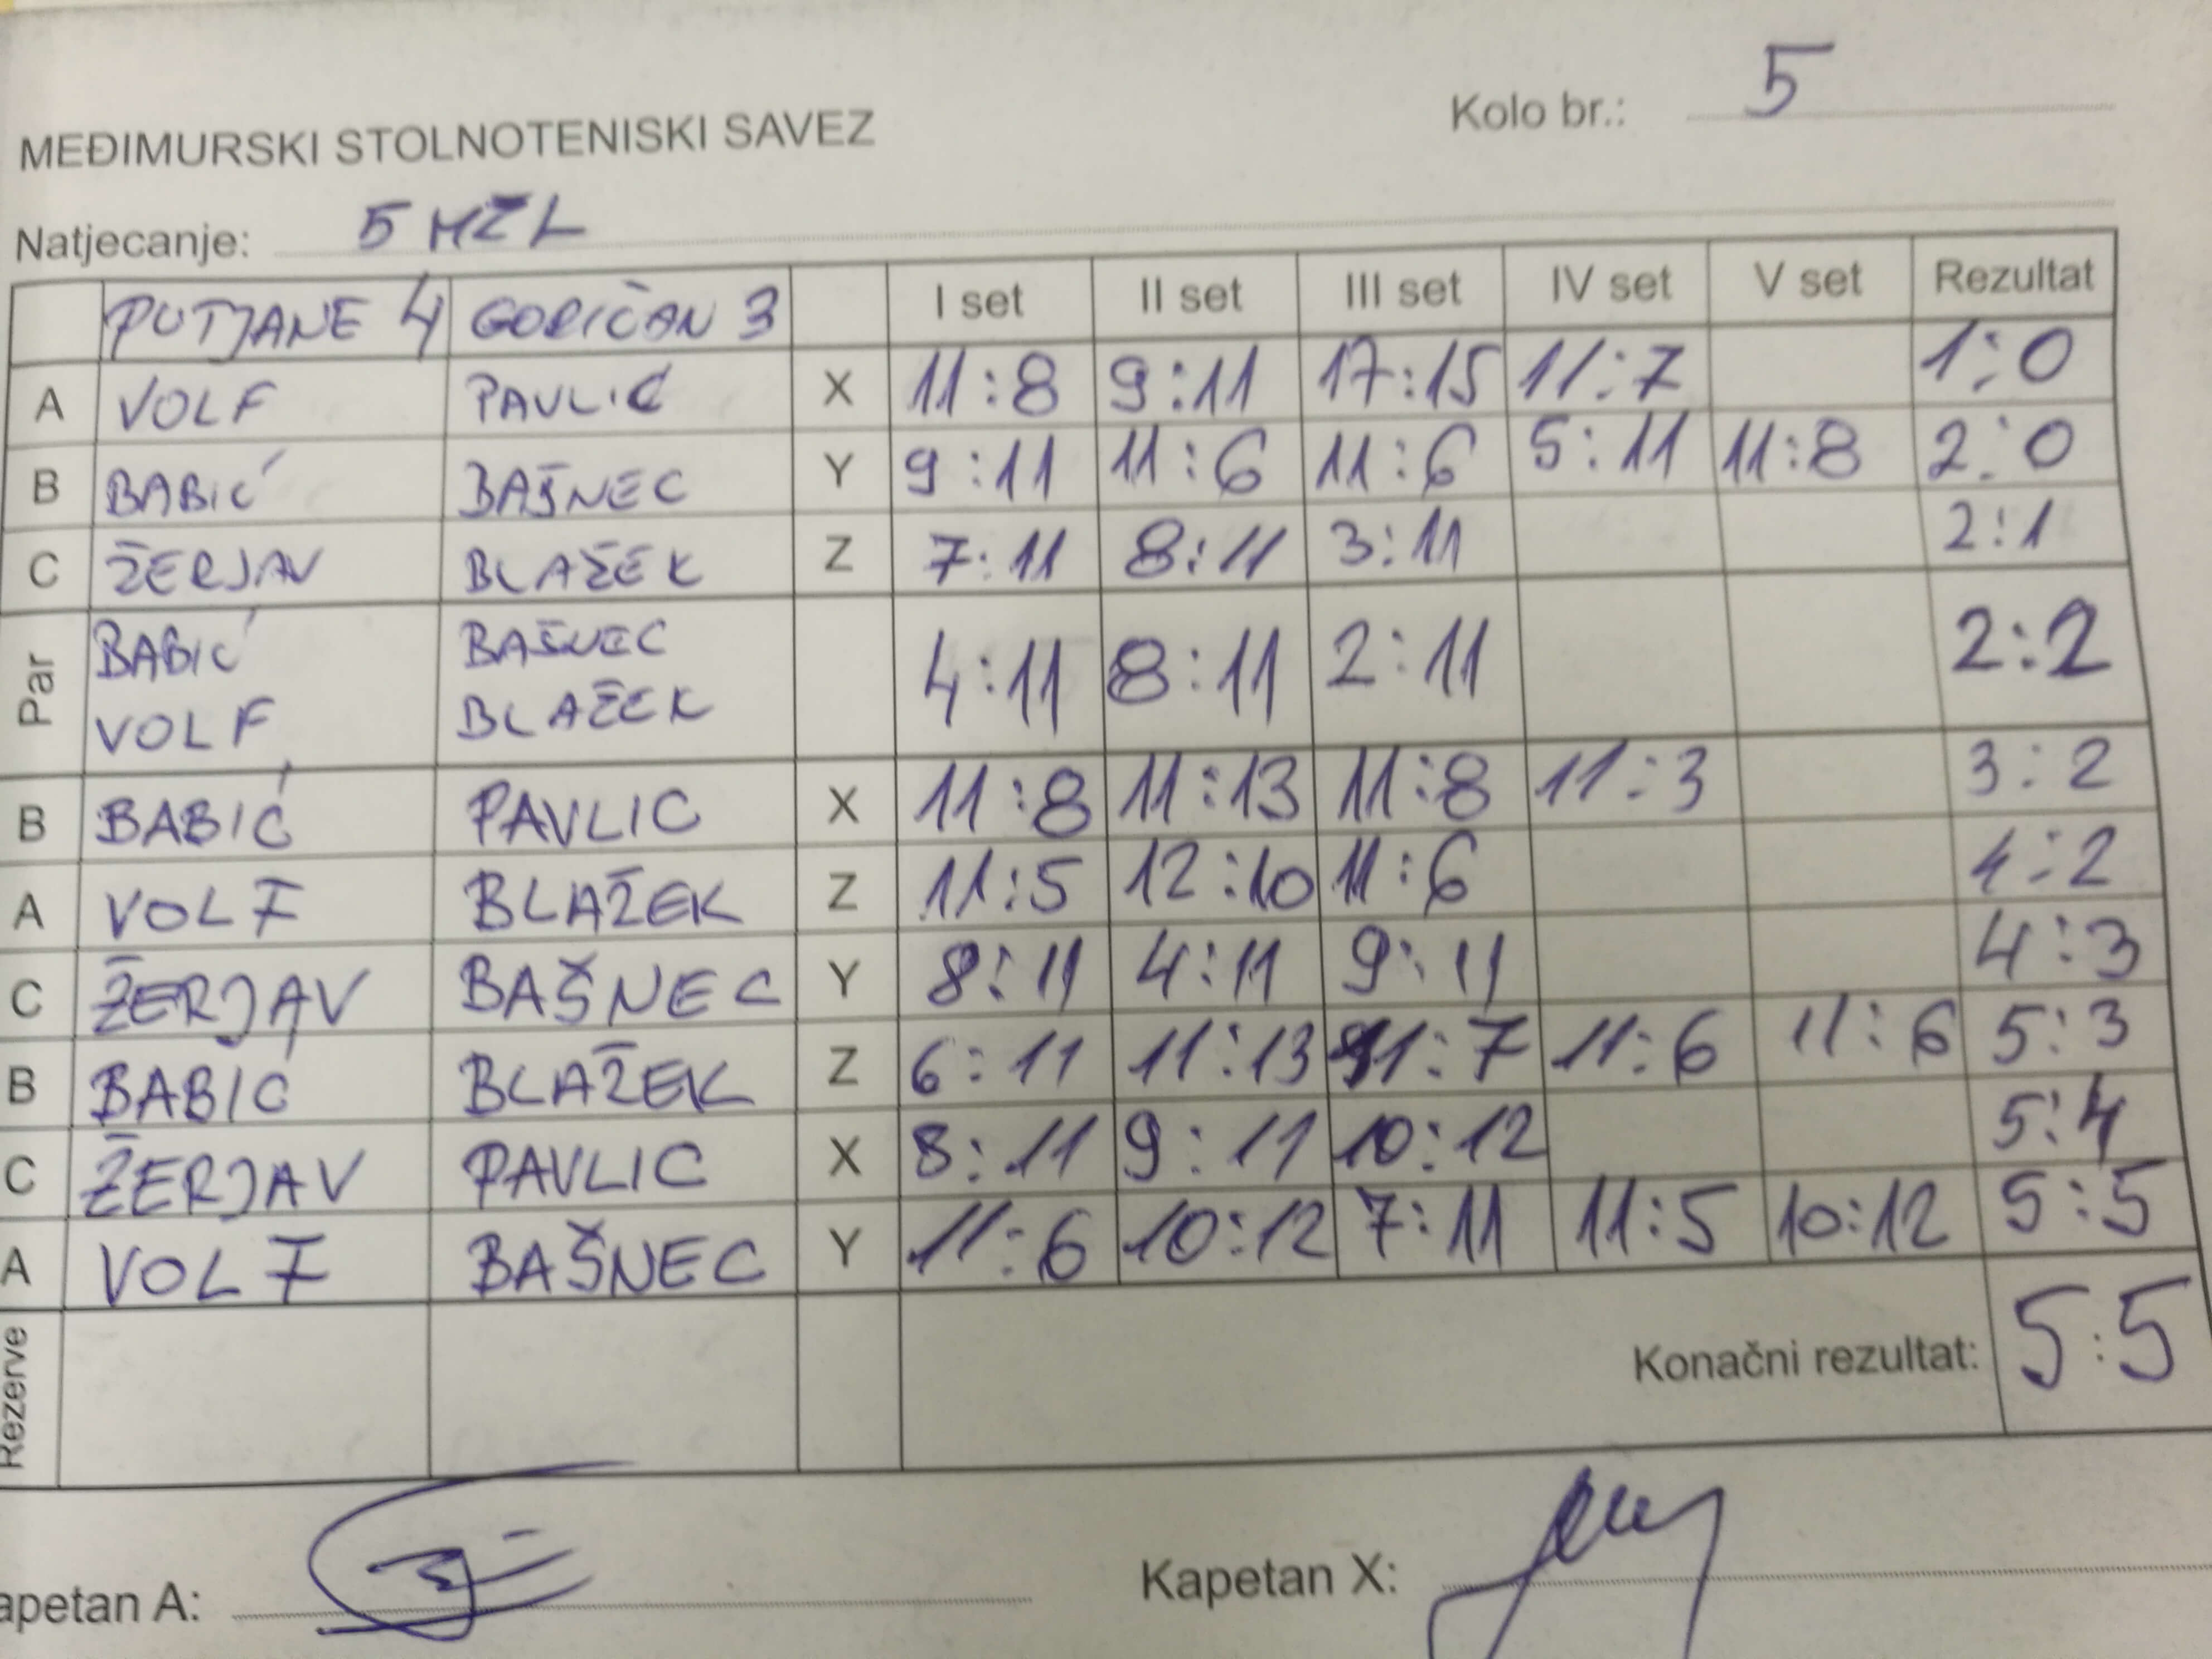 Kolo br.: 5
MEĐIMURSKI STOLNOTENISKI SAVEZ
Natjecanje: 5 MŽL
PUTJANE 4 GORIČAN 3 I set II set III set IV set V set Rezultat
A VOLF PAVLIC X 11:8 9:11 17:15 11:7 1:0
B BABIĆ BAŠNEC Y 9:11 11:6 11:6 5:11 11:8 2:0
C ŽERJAV BLAŽEK Z 7:11 8:11 3:11 2:1
Par BABIĆ BAŠNEC 4:11 8:11 2:11 2:2
VOLF BLAŽEK
B BABIĆ PAVLIC X 11:8 11:13 11:8 11:3 3:2
A VOLF BLAŽEK Z 11:5 12:10 11:6 4:2
C ŽERJAV BAŠNEC Y 8:11 4:11 9:11 4:3
B BABIĆ BLAŽEK Z 6:11 11:13 11:7 11:6 11:6 5:3
C ŽERJAV PAVLIC X 8:11 9:11 10:12 5:4
A VOLF BAŠNEC Y 11:6 10:12 7:11 11:5 10:12 5:5
Rezerve Konačni rezultat: 5:5
apetan A: Kapetan X: